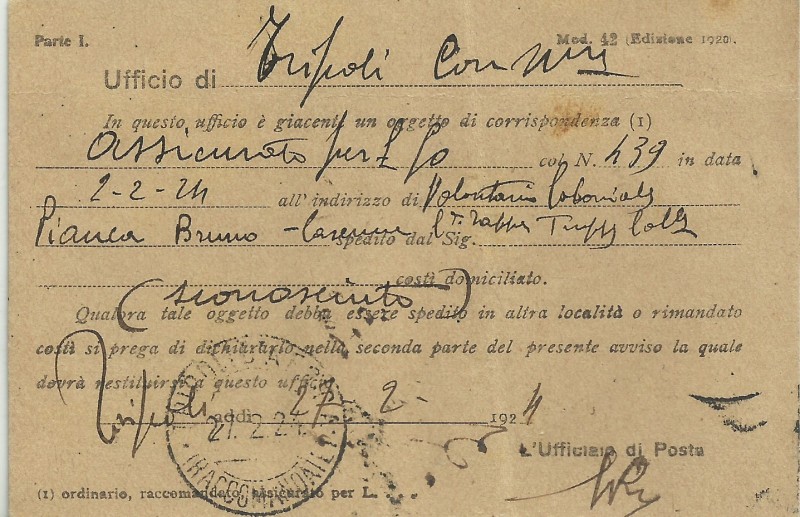 Parte I. Mod. 42 (Edizione 1920).
Ufficio di Tripoli
In questo ufficio è giacente un oggetto di corrispondenza (1)
Assicurato per £ 50 col N. 439 in data
2-2-24 all' indirizzo di Volontario Coloniale
Pianca Bruno - Caserma Truppe spedito dal Sig.
costì domiciliato.
(sconosciuto)
Qualora tale oggetto debba essere spedito in altra località o rimandato
costì si prega di dichiararlo nella seconda parte del presente avviso la quale
dovrà restituirsi a questo ufficio
Tripoli addì 27 2 - 1924
27.2.24
(RACCOMANDATE)
L'Ufficiale di Posta
(1) ordinario, raccomandato, assicurato per L.